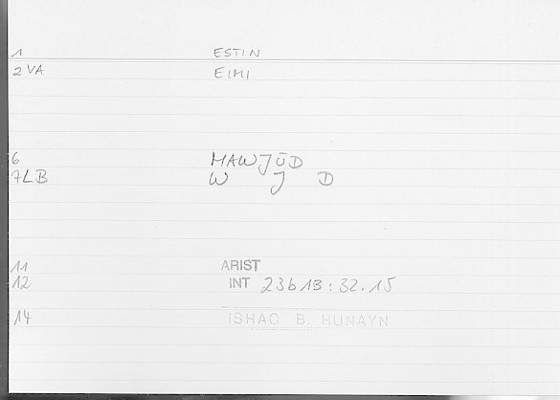 1 ESTIN
2VA EIMI
6 MAWJŪD
7LB W J D
11 ARIST
12 INT 23b13:32.15
14 ISHAO B. HUNAYN